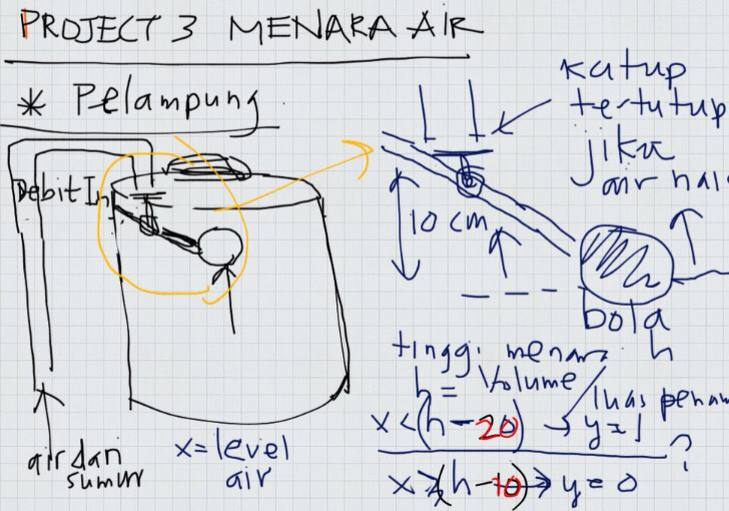 PROJECT 3 MENARA AIR
* Pelampung
Debit In
air dari
sumur
x = level
air
katup
tertutup
jika
air nai
10 cm
bola
h
tinggi menar
h = Volume
luas penam
x < (h - 20) → y = 1
?
x ≥ (h - 10) → y = 0